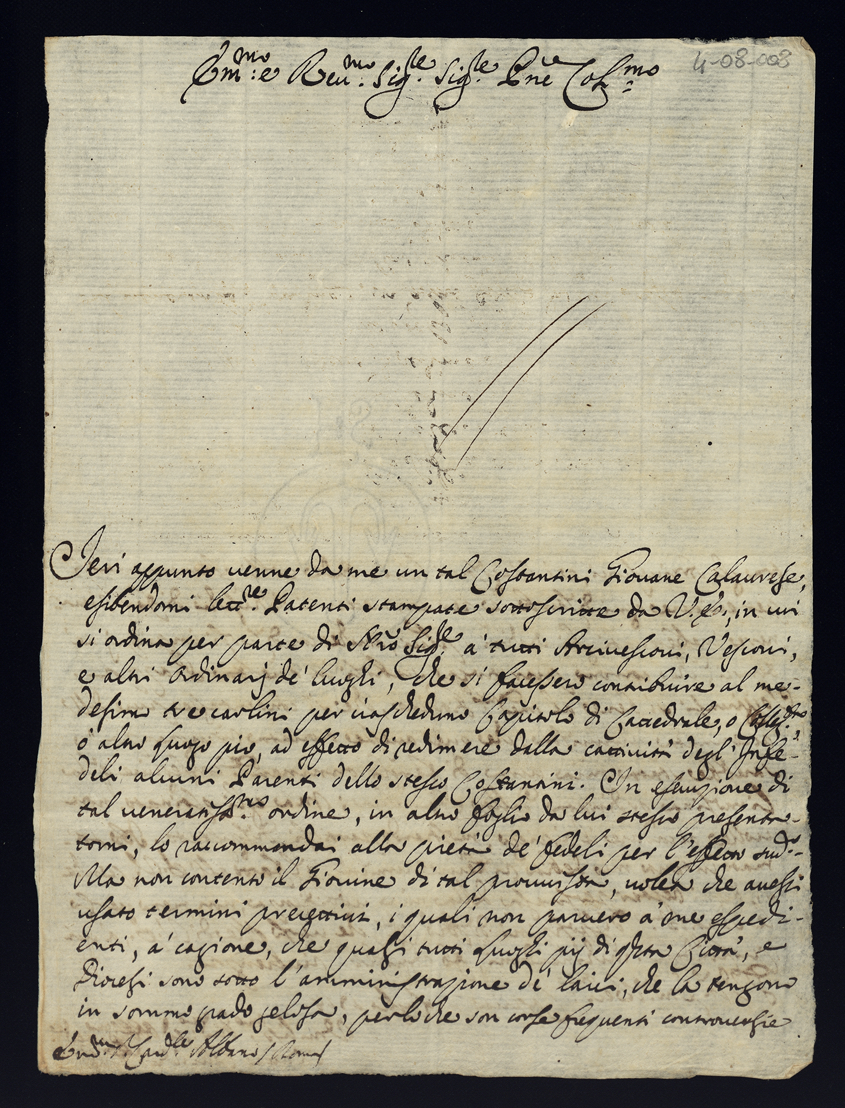 4-08-008
Em:mo e Reu:mo Sig:re Sig:re Pne Col:mo
Jeri appunto uenne da me un tal Costantini Giouane Calaurese,
esibendomi lett:re Patenti stampate sottoscritte da V.E., in cui
si ordina per parte di Nro Sig:re à tutti Arciuescoui, Vescoui,
e altri Ordinarj de' luoghi, che si facessero contribuire al me-
desimo tre carlini per ciascheduno Capitolo di Cattedrale, o
ò altro luogo pio, ad effetto di redimere dalla cattiuità degl' Infe-
deli alcuni Parenti dello stesso Costantini. In esecuzione di
tal ueneratiss:mo ordine, in altro foglio da lui stesso presenta-
tomi, lo raccommandai alla pietà de' fedeli per l'effetto sud:o
Ma non contento il Giouine di tal prouuista, uolea che auessi
usato termini precettiui, i quali non paruero à me espedi-
enti, a' cagione, che quasi tutti luoghi pij di qsta Città, e
Diocesi sono sotto l'amministrazione de' laici, che la tengono
in sommo grado gelosa, perloche son corse frequenti controuersie
Card:le Albano / Roma /